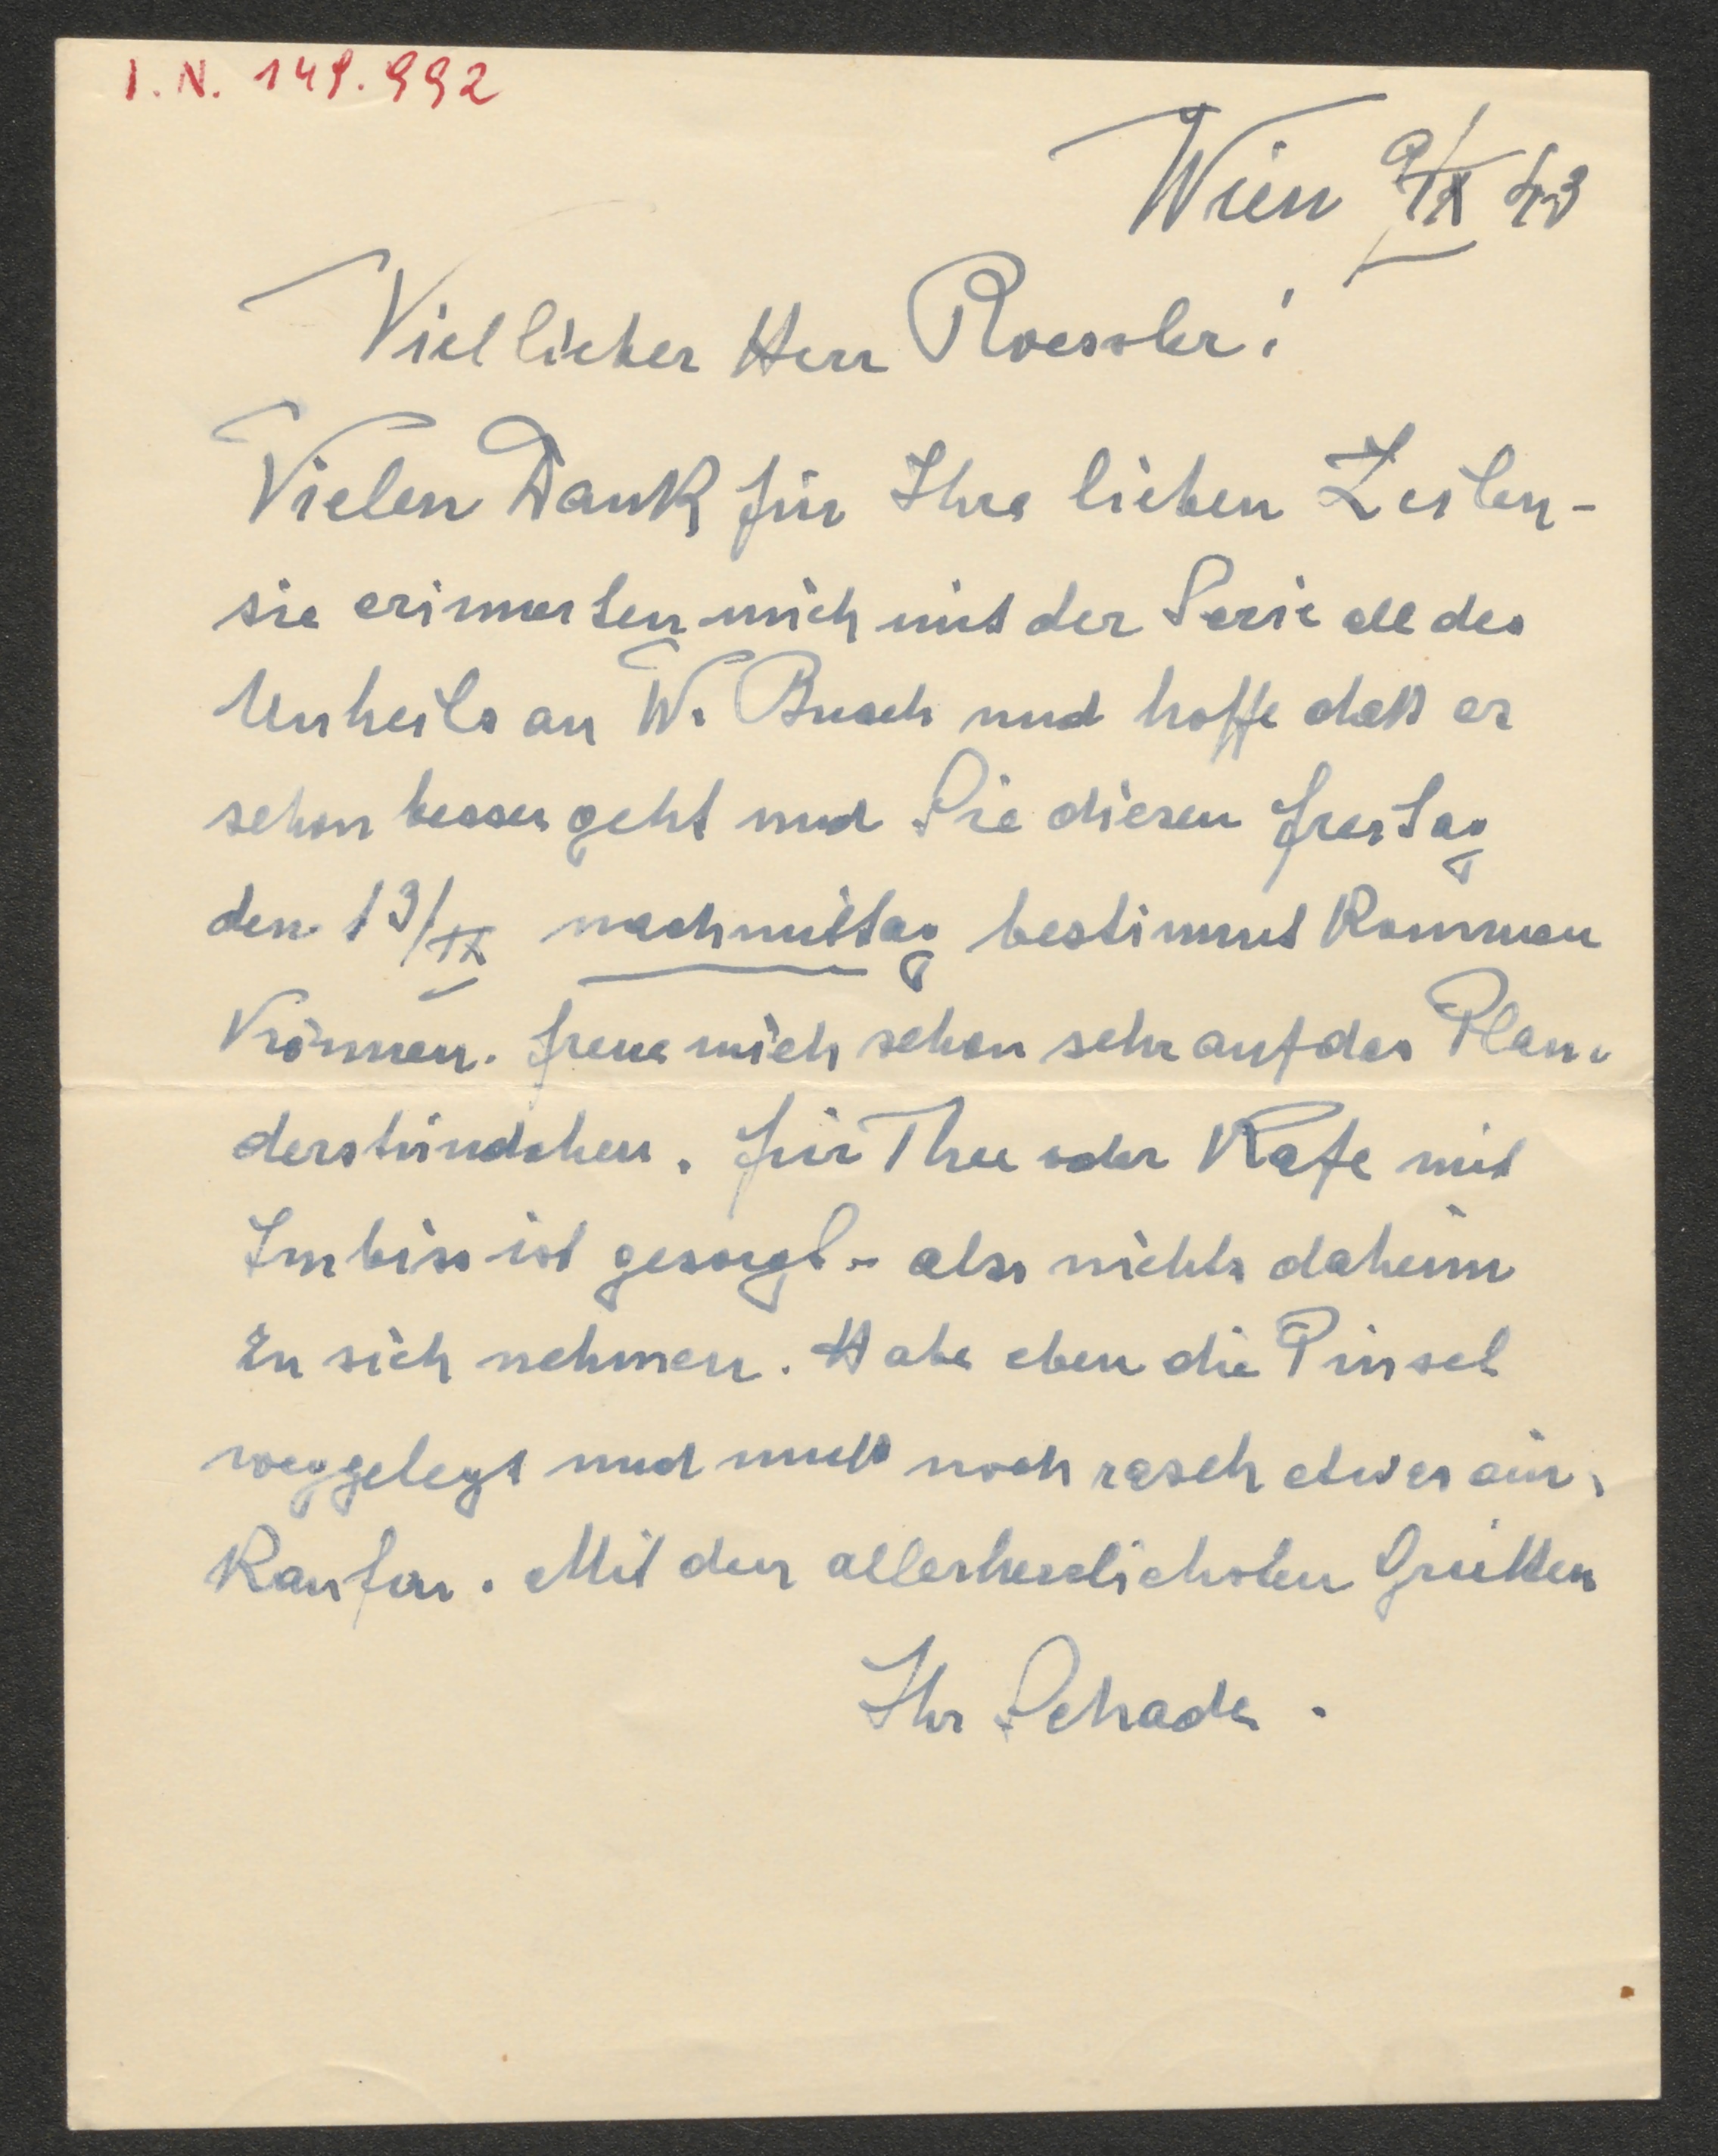 I.N. 149.992
Wien 9/IX 43
Viellieber Herr Roessler!
Vielen Dank für Ihre lieben Zeilen -
sie erinnerten mich mit der Serie all des
Unheils an W. Busch und hoffe daß es
schon besser geht und Sie diesen Freitag
den 13/IX nachmittag bestimmt kommen
können. Freue mich schon sehr auf das Plau-
derstündchen. Für Thee oder Kafe mit
Imbiss ist gesorgt - also nichts daheim
zu sich nehmen. Habe eben die Pinsel
weggelegt und muß noch rasch etwas ein-
kaufen. Mit den allerherzlichsten Grüßen
Ihr Schade.